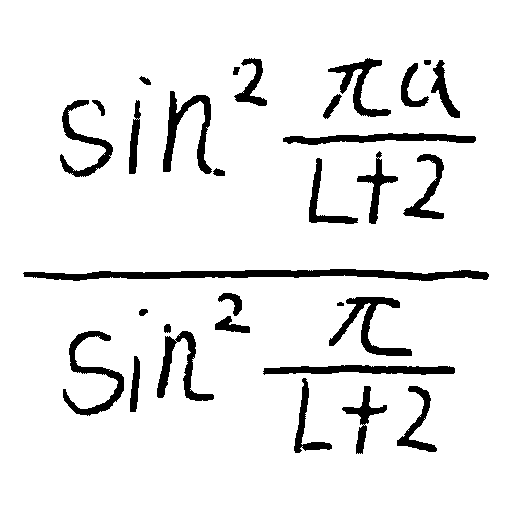 \frac{\sin^2 \frac{\pi a}{L+2}}{\sin^2 \frac{\pi}{L+2}}